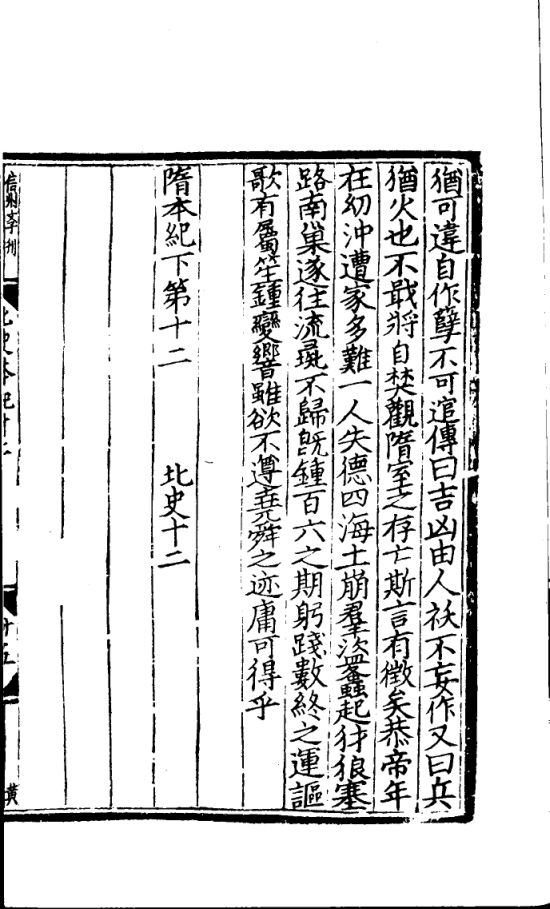 猶可違自作孽不可逭傳曰吉凶由人祅不妄作又曰兵
猶火也不戢將自焚觀隋室之存亡斯言有徵矣恭帝年
在幼沖遭家多難一人失德四海土崩羣盜蠭起犲狼塞
路南巢遂往流彘不歸旣鍾百六之期躬踐數終之運謳
歌有屬笙鍾變響雖欲不遵堯舜之迹庸可得乎
隋本紀下第十二 北史十二
北史本紀十二
十五